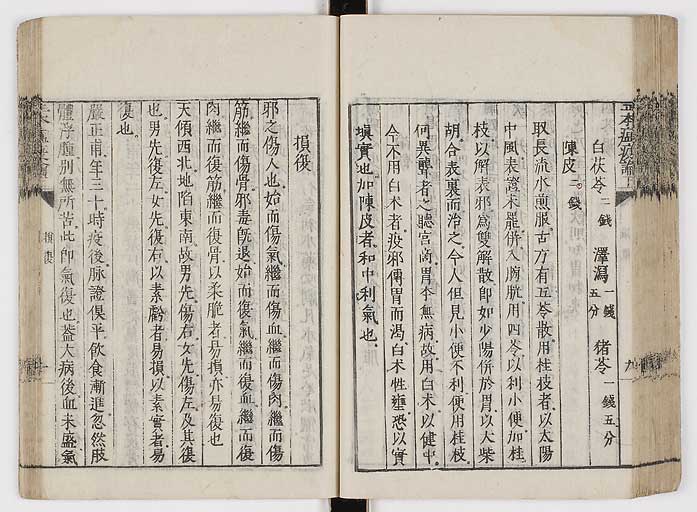 白茯苓二錢 澤瀉一錢五分 猪苓一錢五分
陳皮一錢
取長流水煎服古方有五苓散用桂枝者以太陽
中風表證未罷併入膀胱用四苓以利小便加桂
枝以解表邪爲雙解散即如少陽併於胃以大柴
胡合表裏而治之今人但見小便不利便用桂枝
何異聾者之聽宮商胃本無病故用白朮以健中
今不用白朮者疫邪傳胃而渴白朮性壅恐以實
塡實也加陳皮者和中利氣也
損復
邪之傷人也始而傷氣繼而傷血繼而傷肉繼而傷
筋繼而傷骨邪毒既退始而復氣繼而復血繼而復
肉繼而復筋繼而復骨以柔脆者易損亦易復也
天傾西北地陷東南故男先傷右女先傷左及其復
也男先復左女先復右以素虧者易損以素實者易
復也
嚴正甫年三十時疫後脉證俱平飲食漸進忽然肢
體浮腫別無所苦此即氣復也蓋大病後血未盛氣
損復